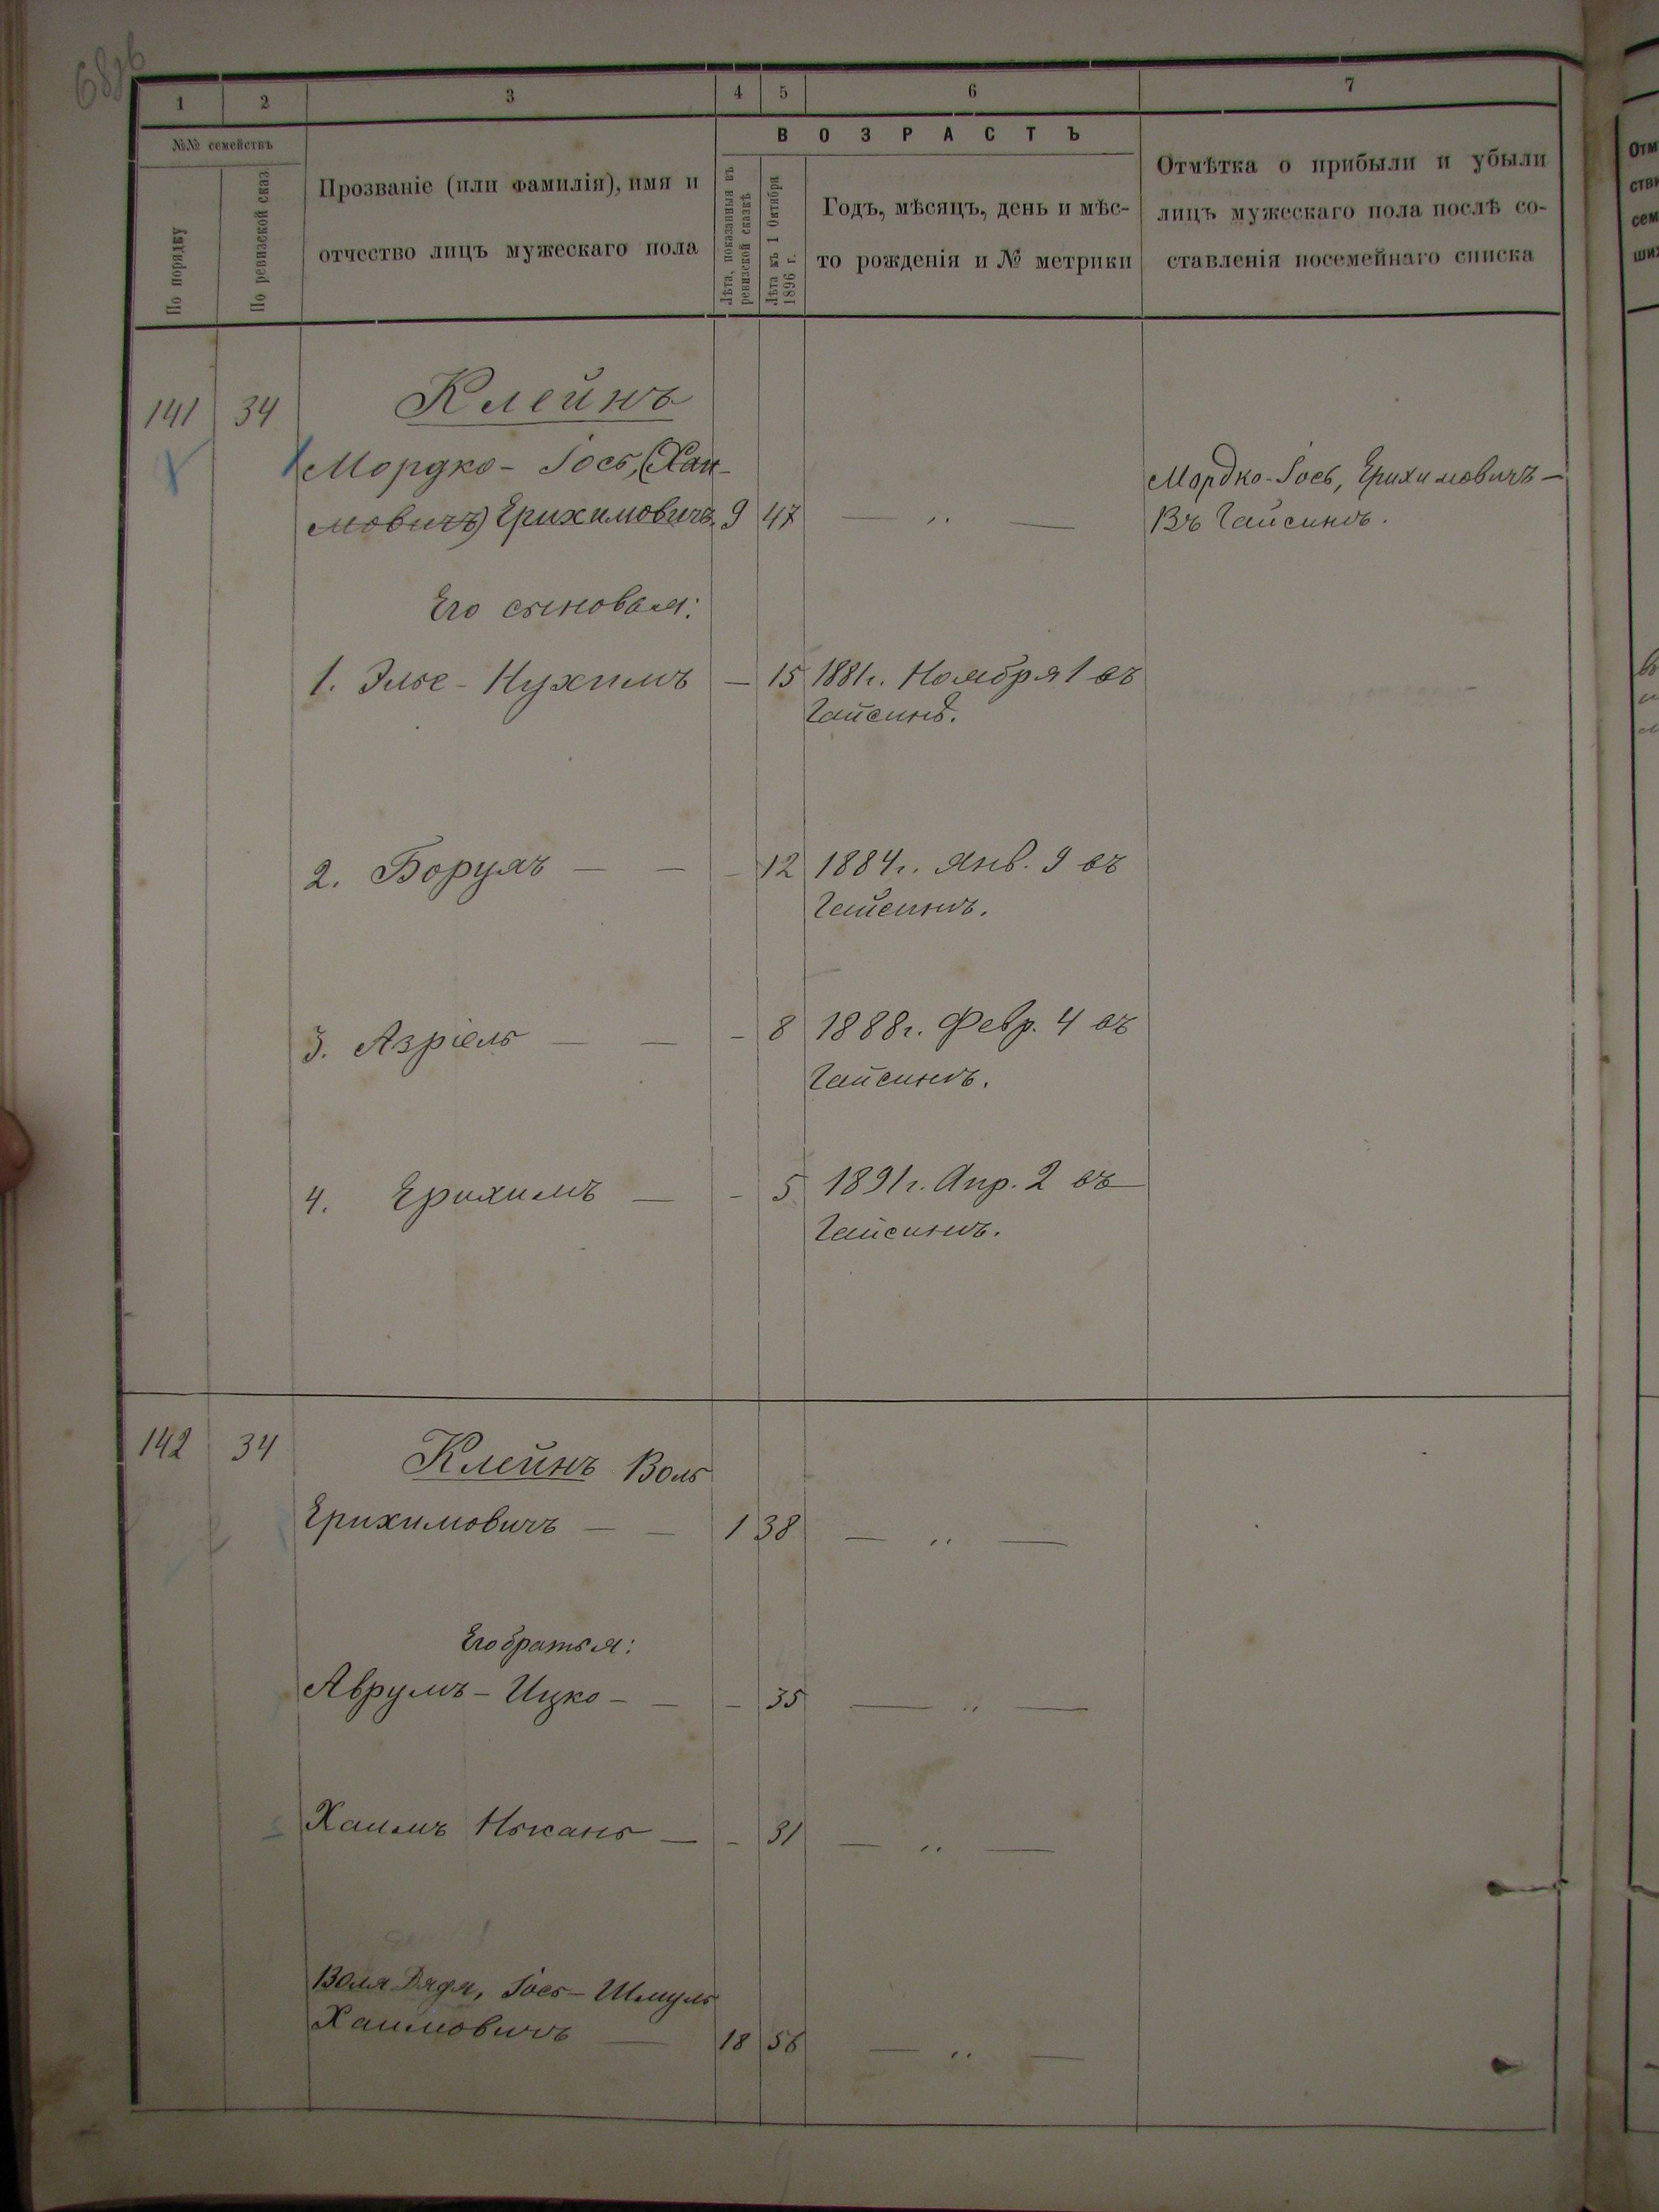 1 2 3 4 5 6 7
№№ семействъ
По порядку
По ревизской сказ.
Прозваніе (или фамилія), имя и
отчество лицъ мужескаго пола
ВОЗРАСТЪ
Лѣта, показанныя въ
ревизской сказкѣ
Лѣта къ 1 Октября
1896 г.
Годъ, мѣсяцъ, день и мѣс-
то рожденія и № метрики
Отмѣтка о прибыли и убыли
лицъ мужескаго пола послѣ со-
ставленія посемейнаго списка
141 34 Клейнъ
Мордко- Іось, (Хаи-
мовичъ) Ерихимовичъ. 9 47 — „ —
Мордко-Іось, Ерихимовичъ —
Въ Гайсинѣ.
Его сыновья:
1. Элье - Нухимъ — 15 1881г. Ноября 1 въ
Гайсинѣ.
2. Борухъ — — - 12 1884г. Янв. 9 въ
Гайсинѣ.
3. Азріель — — - 8 1888г. Февр. 4 въ
Гайсинѣ.
4. Ерихимъ — - 5 1891г. Апр. 2 въ
Гайсинѣ.
142 34 Клейнъ Воль
Ерихимовичъ — — 1 38 — „ —
Его братья:
Аврумъ - Ицко - — - 35 — „ —
Хаимъ — - 31 — „ —
Воля Дядя, Іось - Шмуль
Хаимовичъ — 18 56 — „ —